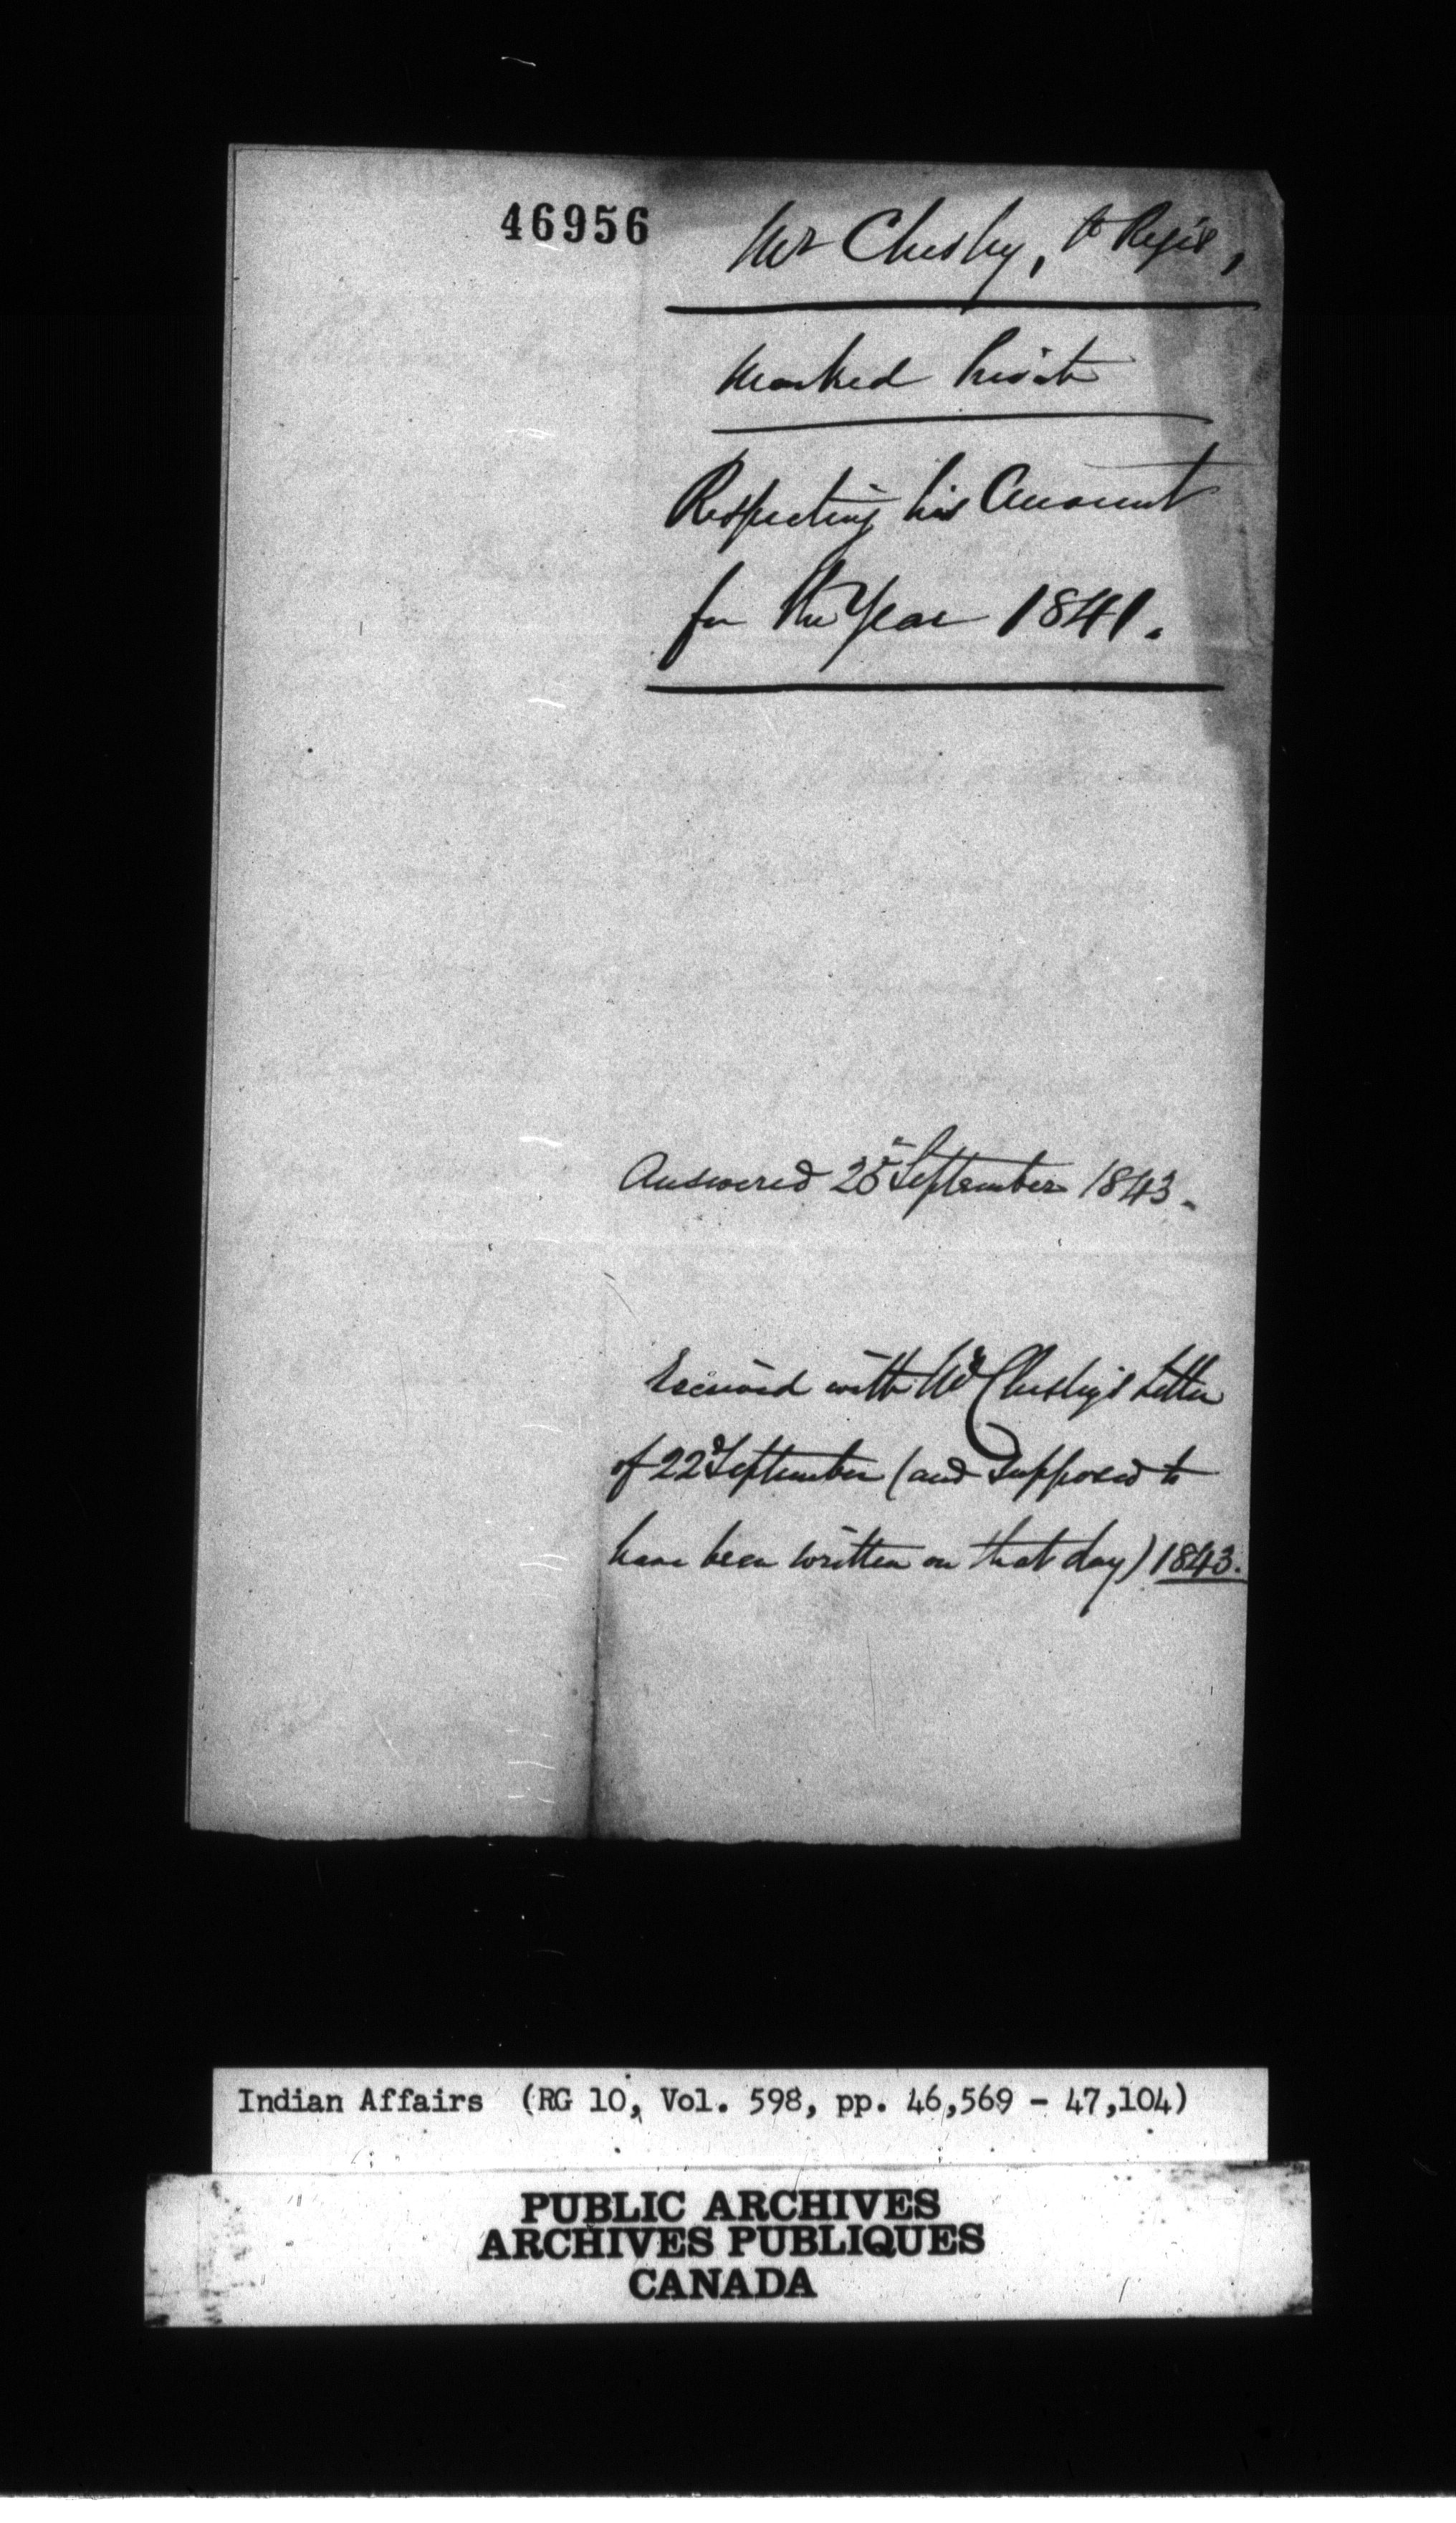 46956
Mr Chesley, St Regis,
Marked Private
Respecting his Account
for the Year 1841.
Answered 25th September 1843.
Received with Mr Chesley's Letter
of 22d September (and supposed to
have been written on that day) 1843.
Indian Affairs (RG 10, Vol. 598, pp. 46,569 - 47,104)
PUBLIC ARCHIVES
ARCHIVES PUBLIQUES
CANADA